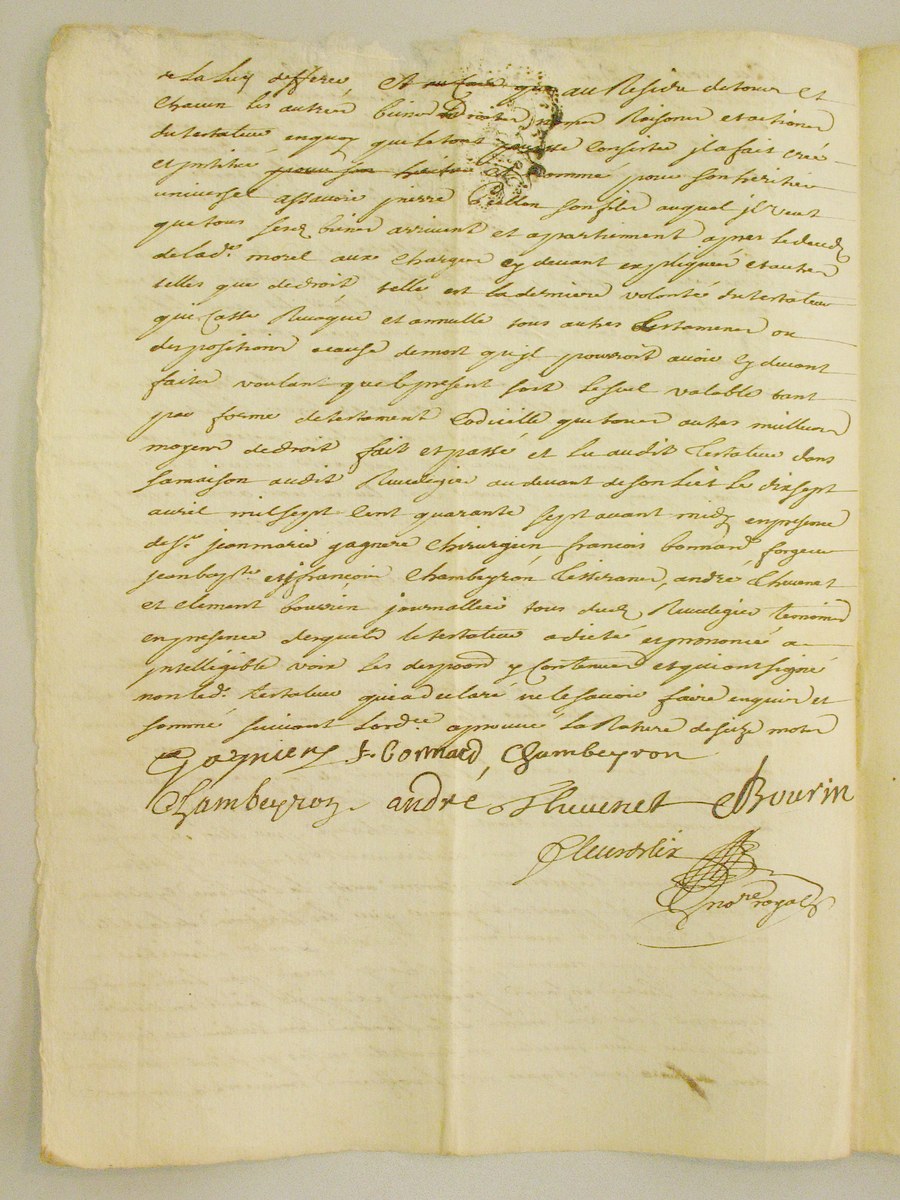 de la luy defferer, et au Residu de tous et
chacun les autres biens Droits noms Raisons et actions
du testateur en quoy que le tout Consiste jl a fait créé
et jnstitué pour son héritié et nomme pour son heritier
universel assavoir pierre Pellon son fils auquel jl veut
que tous sesd biens arrivent et apartiennent apres le deced
de lad. morel aux charges cy devant expliquées et autres
telles que de droit telle est la derniere volonté du testateur
qui Casse Revoque et annulle tous autres testaments ou
dispositions a cause de mort qu'jl pourroit avoir cy devant
faites voulant que le present soit le seul valable tant
par forme de testament Codicille que tous autres meilleurs
moyens de droit fait et passé et lu audit testateur dans
sa maison audit au devant de son lict le dixsept
avril mil sept cent quarante sept avant midy en presence
de Sr. jean marie gagnere chirurgien, francois bonnard forgeur
jean bapte. et françois Chambeyron tisserans, andré thevenet
et clement bourin journallier tous dud temoins
en presence desquels le testateur a dicté et prononcé a
jntelligible voix les y Contenues et qui ont signé
non led. testateur qui a declaré ne le savoir faire enquis et
sommé suivant l'ordce. aprouvé la Rature de seize mots
Gagniere f. Bonnard, Chambeyron
Chambeyron andré Thevenet Bourin
Fleurdelix
nore royal